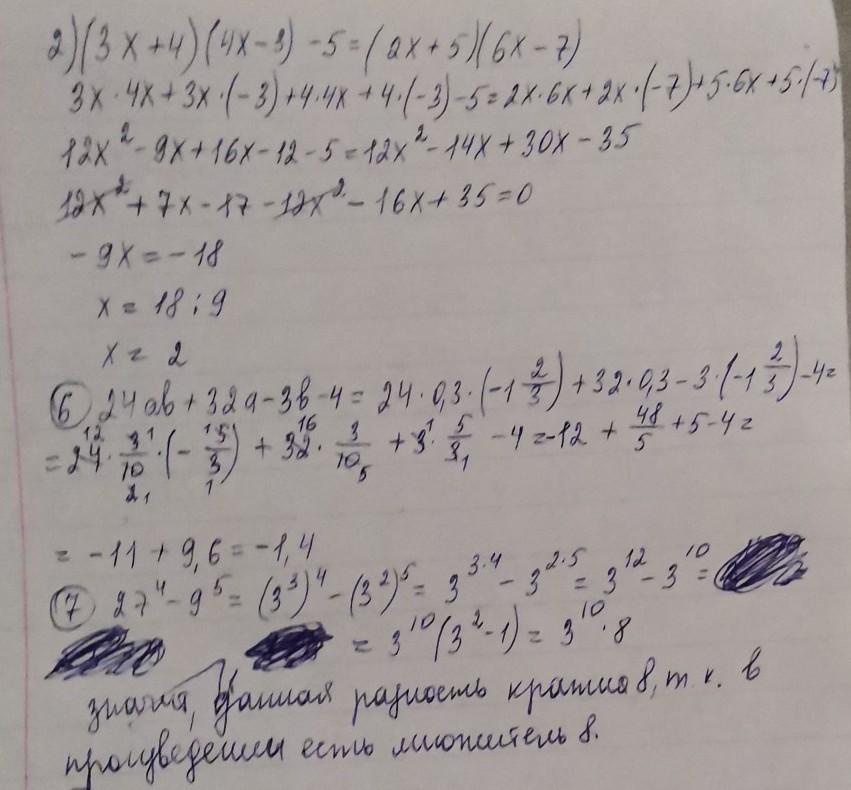 2) (3x+4)(4x-3) -5 = (2x+5)(6x-7)
3x·4x+3x·(-3)+4·4x+4·(-3)-5=2x·6x+2x·(-7)+5·6x+5·(-7)
12x²-9x+16x-12-5=12x²-14x+30x-35
12x²+7x-17-12x²-16x+35=0
-9x=-18
x=18:9
x=2
⑥ 24ab+32a-3b-4=24·0,3·(-1 2/3)+32·0,3-3·(-1 2/3)-4=
=24·3/10·(-5/3)+32·3/10+3·5/3-4=-12+48/5+5-4=
=-11+9,6=-1,4
⑦ 27⁴-9⁵=(3³)⁴-(3²)⁵=3^3·4-3^2·5=3¹²-3¹⁰=
=3¹⁰(3²-1)=3¹⁰·8
значит, данная разность кратна 8, т.к. в
произведении есть множитель 8.